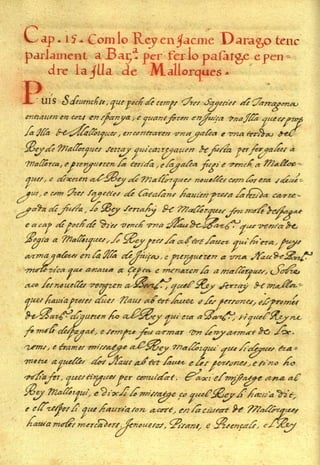 Cap. 15. Com lo Rey en Jacme Darago tenc
parlament a Bar.ª per fer lo pasatge e pen-
dre la Jlla de Mallorques.
Puis Sdevenchse, que poch de temps Tres Sageties de Tarragona
entraven en cors en espanya, e quant foren en Juiça una Jlla que es prop
la Jlla de Mallorques, encontraren una galea e una terida del
Rey de Mallorques serray qui carregaven de fusta per fer galees a
mallorca, e prengueren la terida, e la galea fugi e vench a Mallor-
ques, e dixeren al Rey de Mallorques novelles com los era sdevē-
gut, e com Tres Sageties de Catalans havien presa la terida carre-
gada de fusta, lo Rey serrahi de Mallorques fou molt despagat
e a cap de poch de dies vench una Nau de Bar.ª que venia de
Bogia a Mallorques, lo Rey pres la ab tot l aver qui hi era, puys
arma galees en la Jlla de Juiça, e prengueren a una Nau de Bar.ª
molt rica que anava a Cepta e menaren la a mallorques, Sobre
aco les novelles vengren a Bar.ª, quel Rey Serray de mallor-
ques havia preses dues Naus ab tot l aver e les persones, els promēs
de Bar.ª digueren ho al Rey qui era a Bar.ª, si quel Rey ne
fo molt despagat, e sempre feu armar un leny armat de Lx.
rems, e trames missatge al Rey Mallorqui que li degues tra-
metre aquelles dos Naus ab tot l aver e les persones, e si no ho
volia fer, ques tingues per convidat. E axi el missatge ana al
Rey Mallorqui, e dix li lo missatge co quel Rey li havia dit,
e ell respos li que hauria son acort, en la ciutat de Mallorques
havia molts mercaders, Jenovesos, Pisans, e Proençals, e l Rey